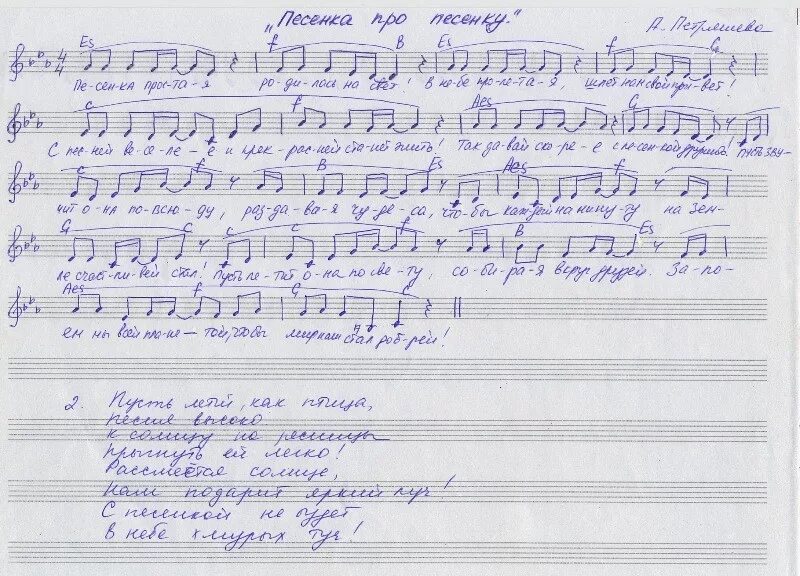 "Песенка про песенку."
А. Петряшева
Es f B Es f C
Пе-сен-ка прос-та-я ро-ди-лась на свет! В не-бе про-ле-та-я, шлёт нам свой при-вет!
c f Aes G
С пес-ней ве-се-ле-е и прек-рас-ней ста-нет жить! Так да-вай ско-ре-е с пе-сен-кой дружить! Пусть зву-
c f B Es Aes f
чит о-на по-всю-ду, раз-да-ва-я чу-де-са, что-бы каж-дый на ми-ну-ту на Зем-
G C c f B Es
ле счаст-ли-вей стал! Пусть ле-тит о-на по све-ту, со-би-ра-я вкруг друзей. За-по-
Aes f G c
ём мы всей пла-не-той, что-бы мир наш стал доб-рей!
2. Пусть летит, как птица,
Песня высоко
К солнцу на ресницы
Прыгнуть ей легко!
Рассмеётся солнце,
Нам подарит яркий луч!
С песенкой не будет
В небе хмурых туч!